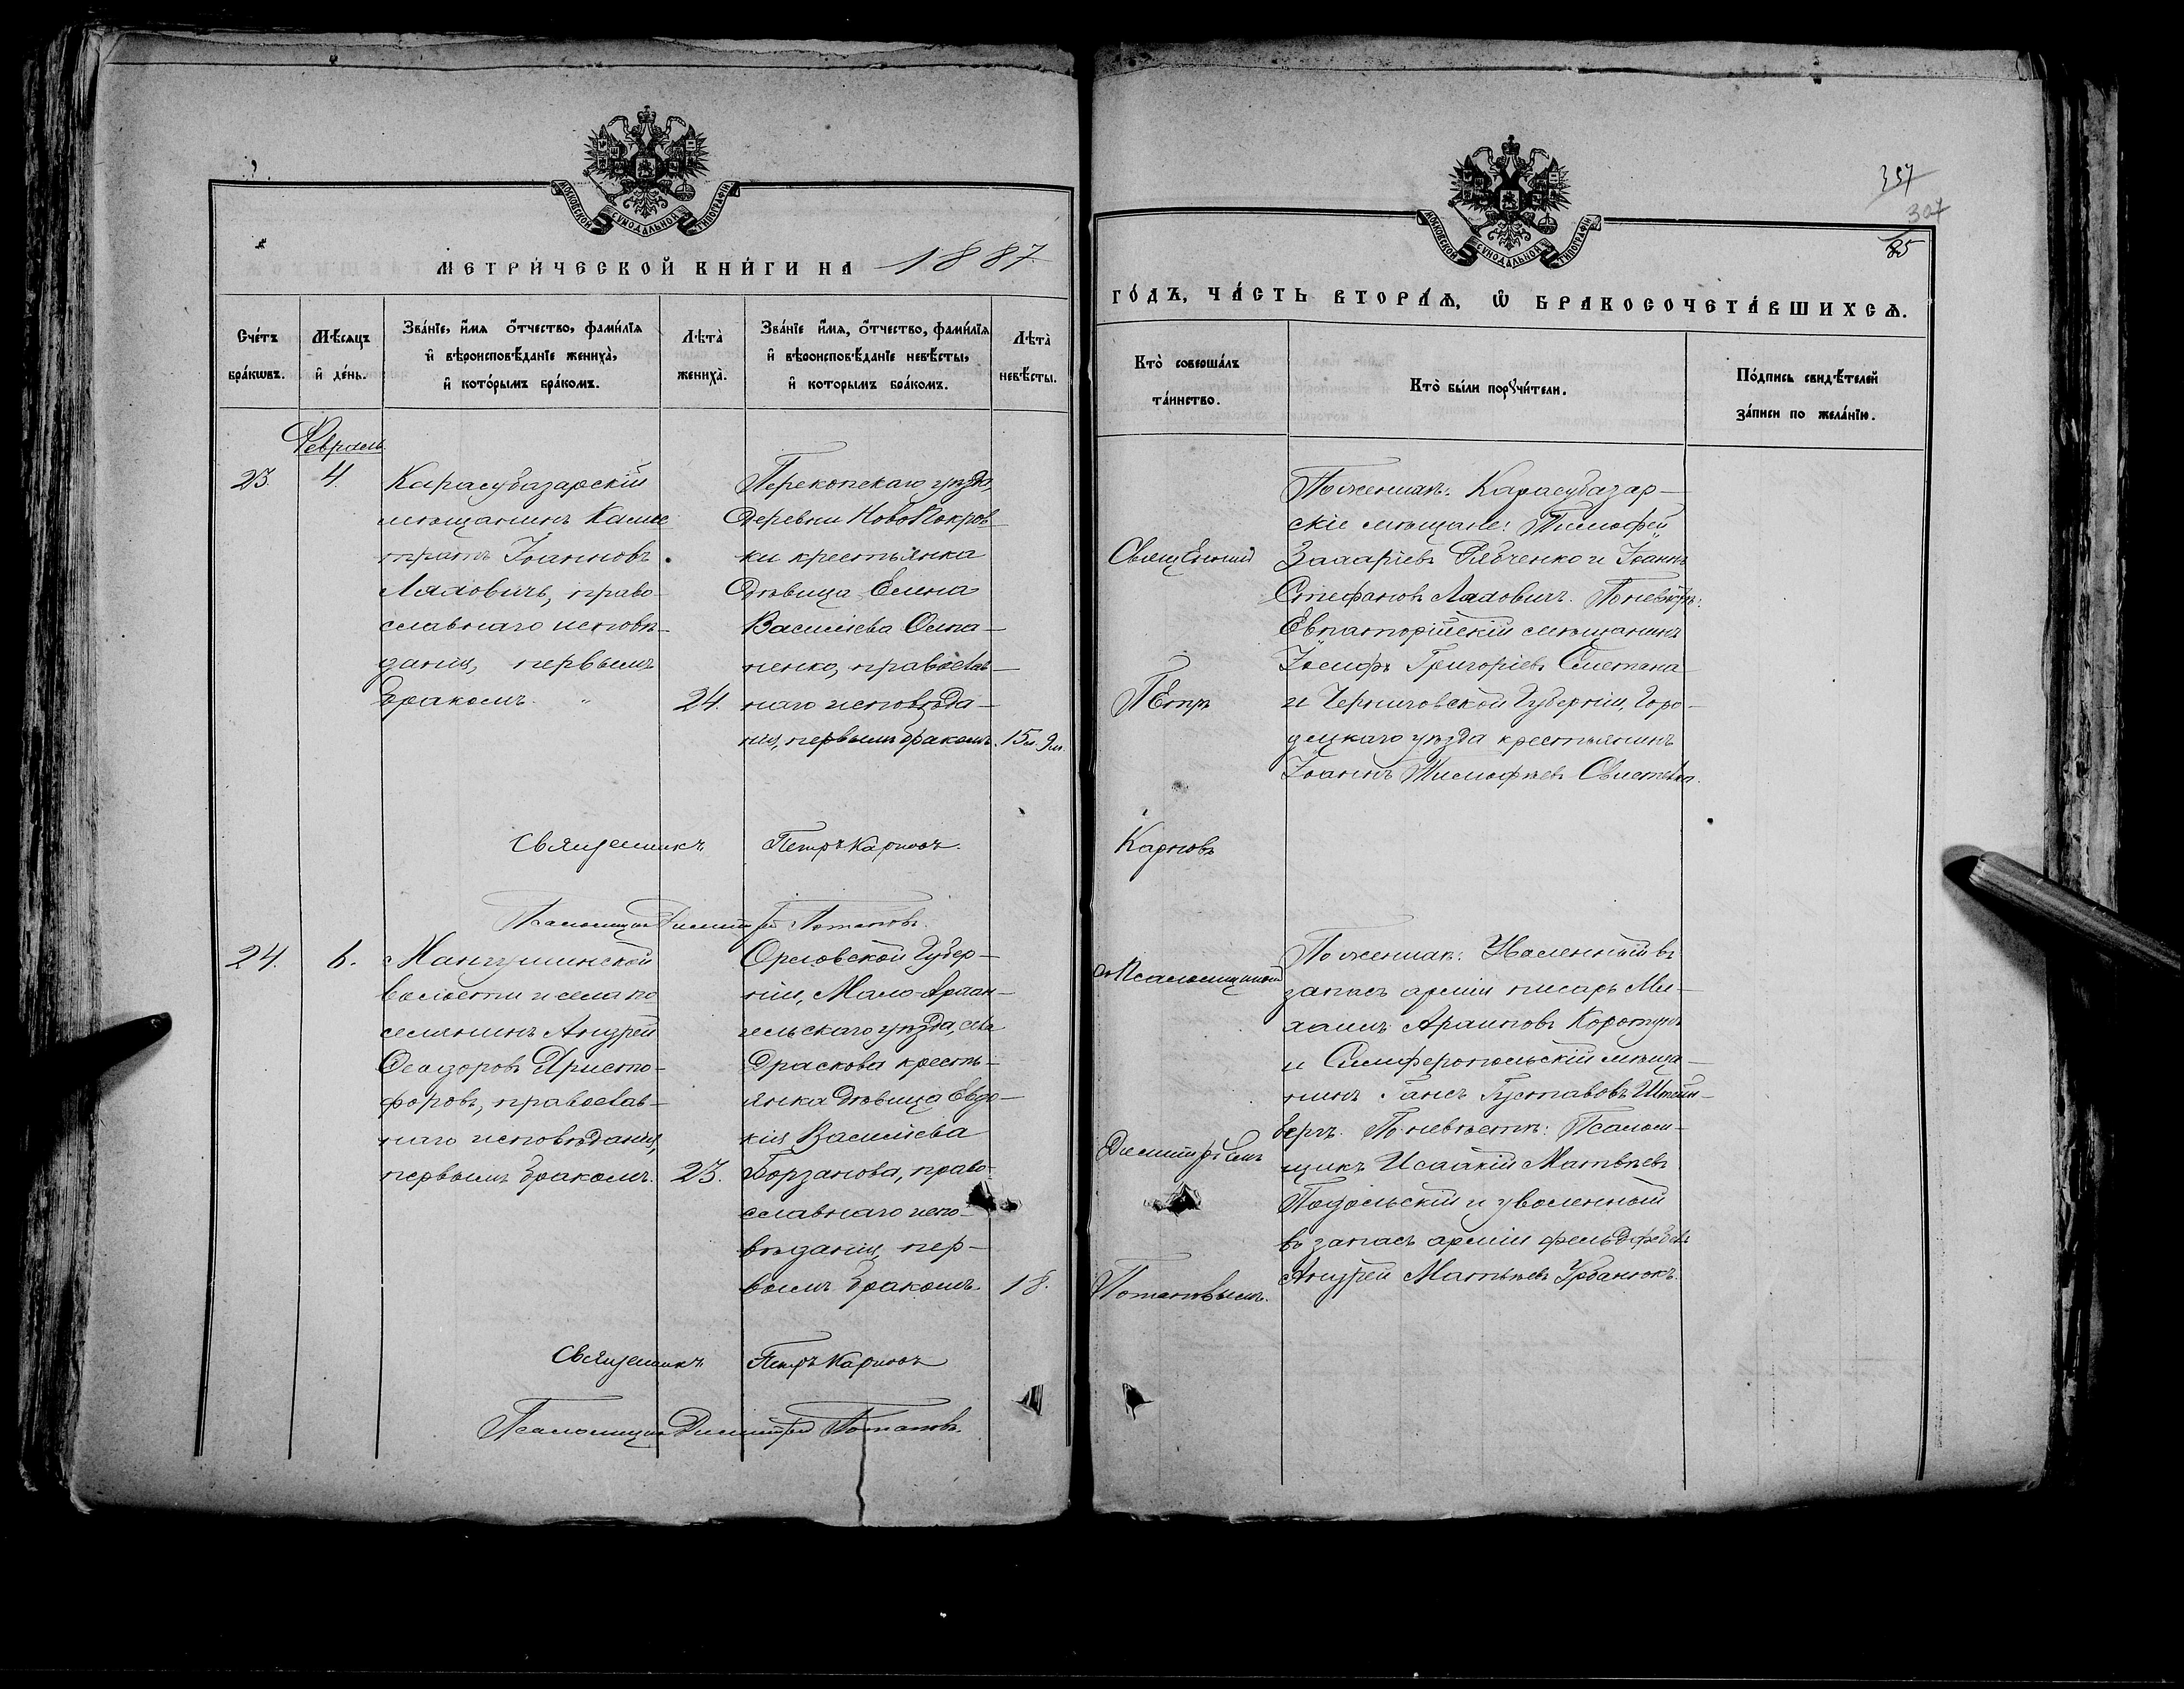 МОСКОВСКОЙ СУНОДАЛЬНОЙ ТИПОГРАФІИ
МЕТРИ́ЧЕСКОЙ КНИ́ГИ НА 1887
Сче́тъ бра́кѡвъ.
Мѣ́сяцъ и҆ де́нь.
Зва́нїе, и҆́мя ѻ҆́тчество, фами́лїя
и҆ вѣроисповѣ́данїе жениха̀,
и҆ кото́рымъ бра́комъ.
Лѣта̀ жениха̀.
Зва́нїе и҆́мя, ѻ҆́тчество, фами́лїя
и҆ вѣроисповѣ́данїе невѣ́сты,
и҆ которымъ бра́комъ.
Лѣта̀ невѣ́сты.
Февраль
23. 4.
Карасубазарскій
мѣщанинъ Калис
тратъ Іоанновъ
Ляховичъ, право
славнаго исповѣ-
данія, первымъ
бракомъ. 24.
Перекопскаго уѣзда,
деревни НовоПокров
ки крестьянка
дѣвица Елена
Васильева
ненко, православ-
наго исповѣда-
нія, первымъ бракомъ. 15 л. 9 м.
Священникъ Петръ Карповъ.
Псаломщикъ Димитрій Потаповъ.
24. 6.
Мангушской
волости и села по
селянинъ Андрей
Феодоровъ Христо-
форовъ, православ-
наго исповѣданія,
первымъ бракомъ. 23.
Орловской Губер-
ніи, Мало-Архан-
гельскаго уѣзда, села
Драскова кресть-
янка дѣвица Евдо-
кія Васильева
Борзанова, право-
славнаго испо-
вѣданія, пер-
вымъ бракомъ. 18.
Священникъ Петръ Карповъ
Псаломщикъ Димитрій Потаповъ.
357
307
85
МОСКОВСКОЙ СУНОДАЛЬНОЙ ТИПОГРАФІИ
ГО́ДЪ, ЧА́СТЬ ВТОРА́Ѧ, Ѡ҆ БРАКОСОЧЕТА́ВШИХСѦ.
Кто̀ соверша́лъ
та́инство.
Кто̀ бы́ли порꙋчи́тели.
По́дпись свидѣ́телей
за́писи по жела́нїю.
Священникъ
Петръ
Карповъ
По женихѣ: Карасубазар-
скіе мѣщане: Тимофей
Захаріевъ Рябченко и Іоаннъ
Стефановъ Ляховичъ. По невѣстѣ:
Евпаторійскій мѣщанинъ
Іосифъ Григоріевъ Сметана
и Черниговской Губерніи, Горо-
децкаго уѣзда крестьянинъ
Іоаннъ Тимофѣевъ
съ Псаломщикомъ
Димитріемъ
Потаповымъ.
По женихѣ: Уволенный въ
запасъ арміи писарь Ми-
хаилъ Архиповъ Коротунъ
и Симферопольскій мѣща-
нинъ Гансъ Густавовъ Штейн-
бергъ. По невѣстѣ: Псалом-
щикъ Исаакій Матвѣевъ
Подольскій и уволенный
въ запасъ арміи фельдфебель
Андрей Матвѣевъ Урбанюкъ.